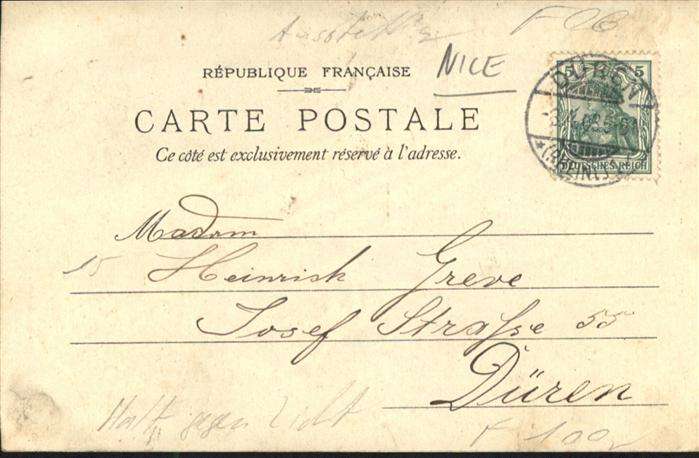 F OB
NICE
RÉPUBLIQUE FRANÇAISE
CARTE POSTALE
Ce côté est exclusivement réservé à l'adresse.
5 5
DÜREN
DEUTSCHES REICH
Madam
15 Heinrich Greve
Josef Straße 55
Düren
Halt gegen Licht
F 100,-